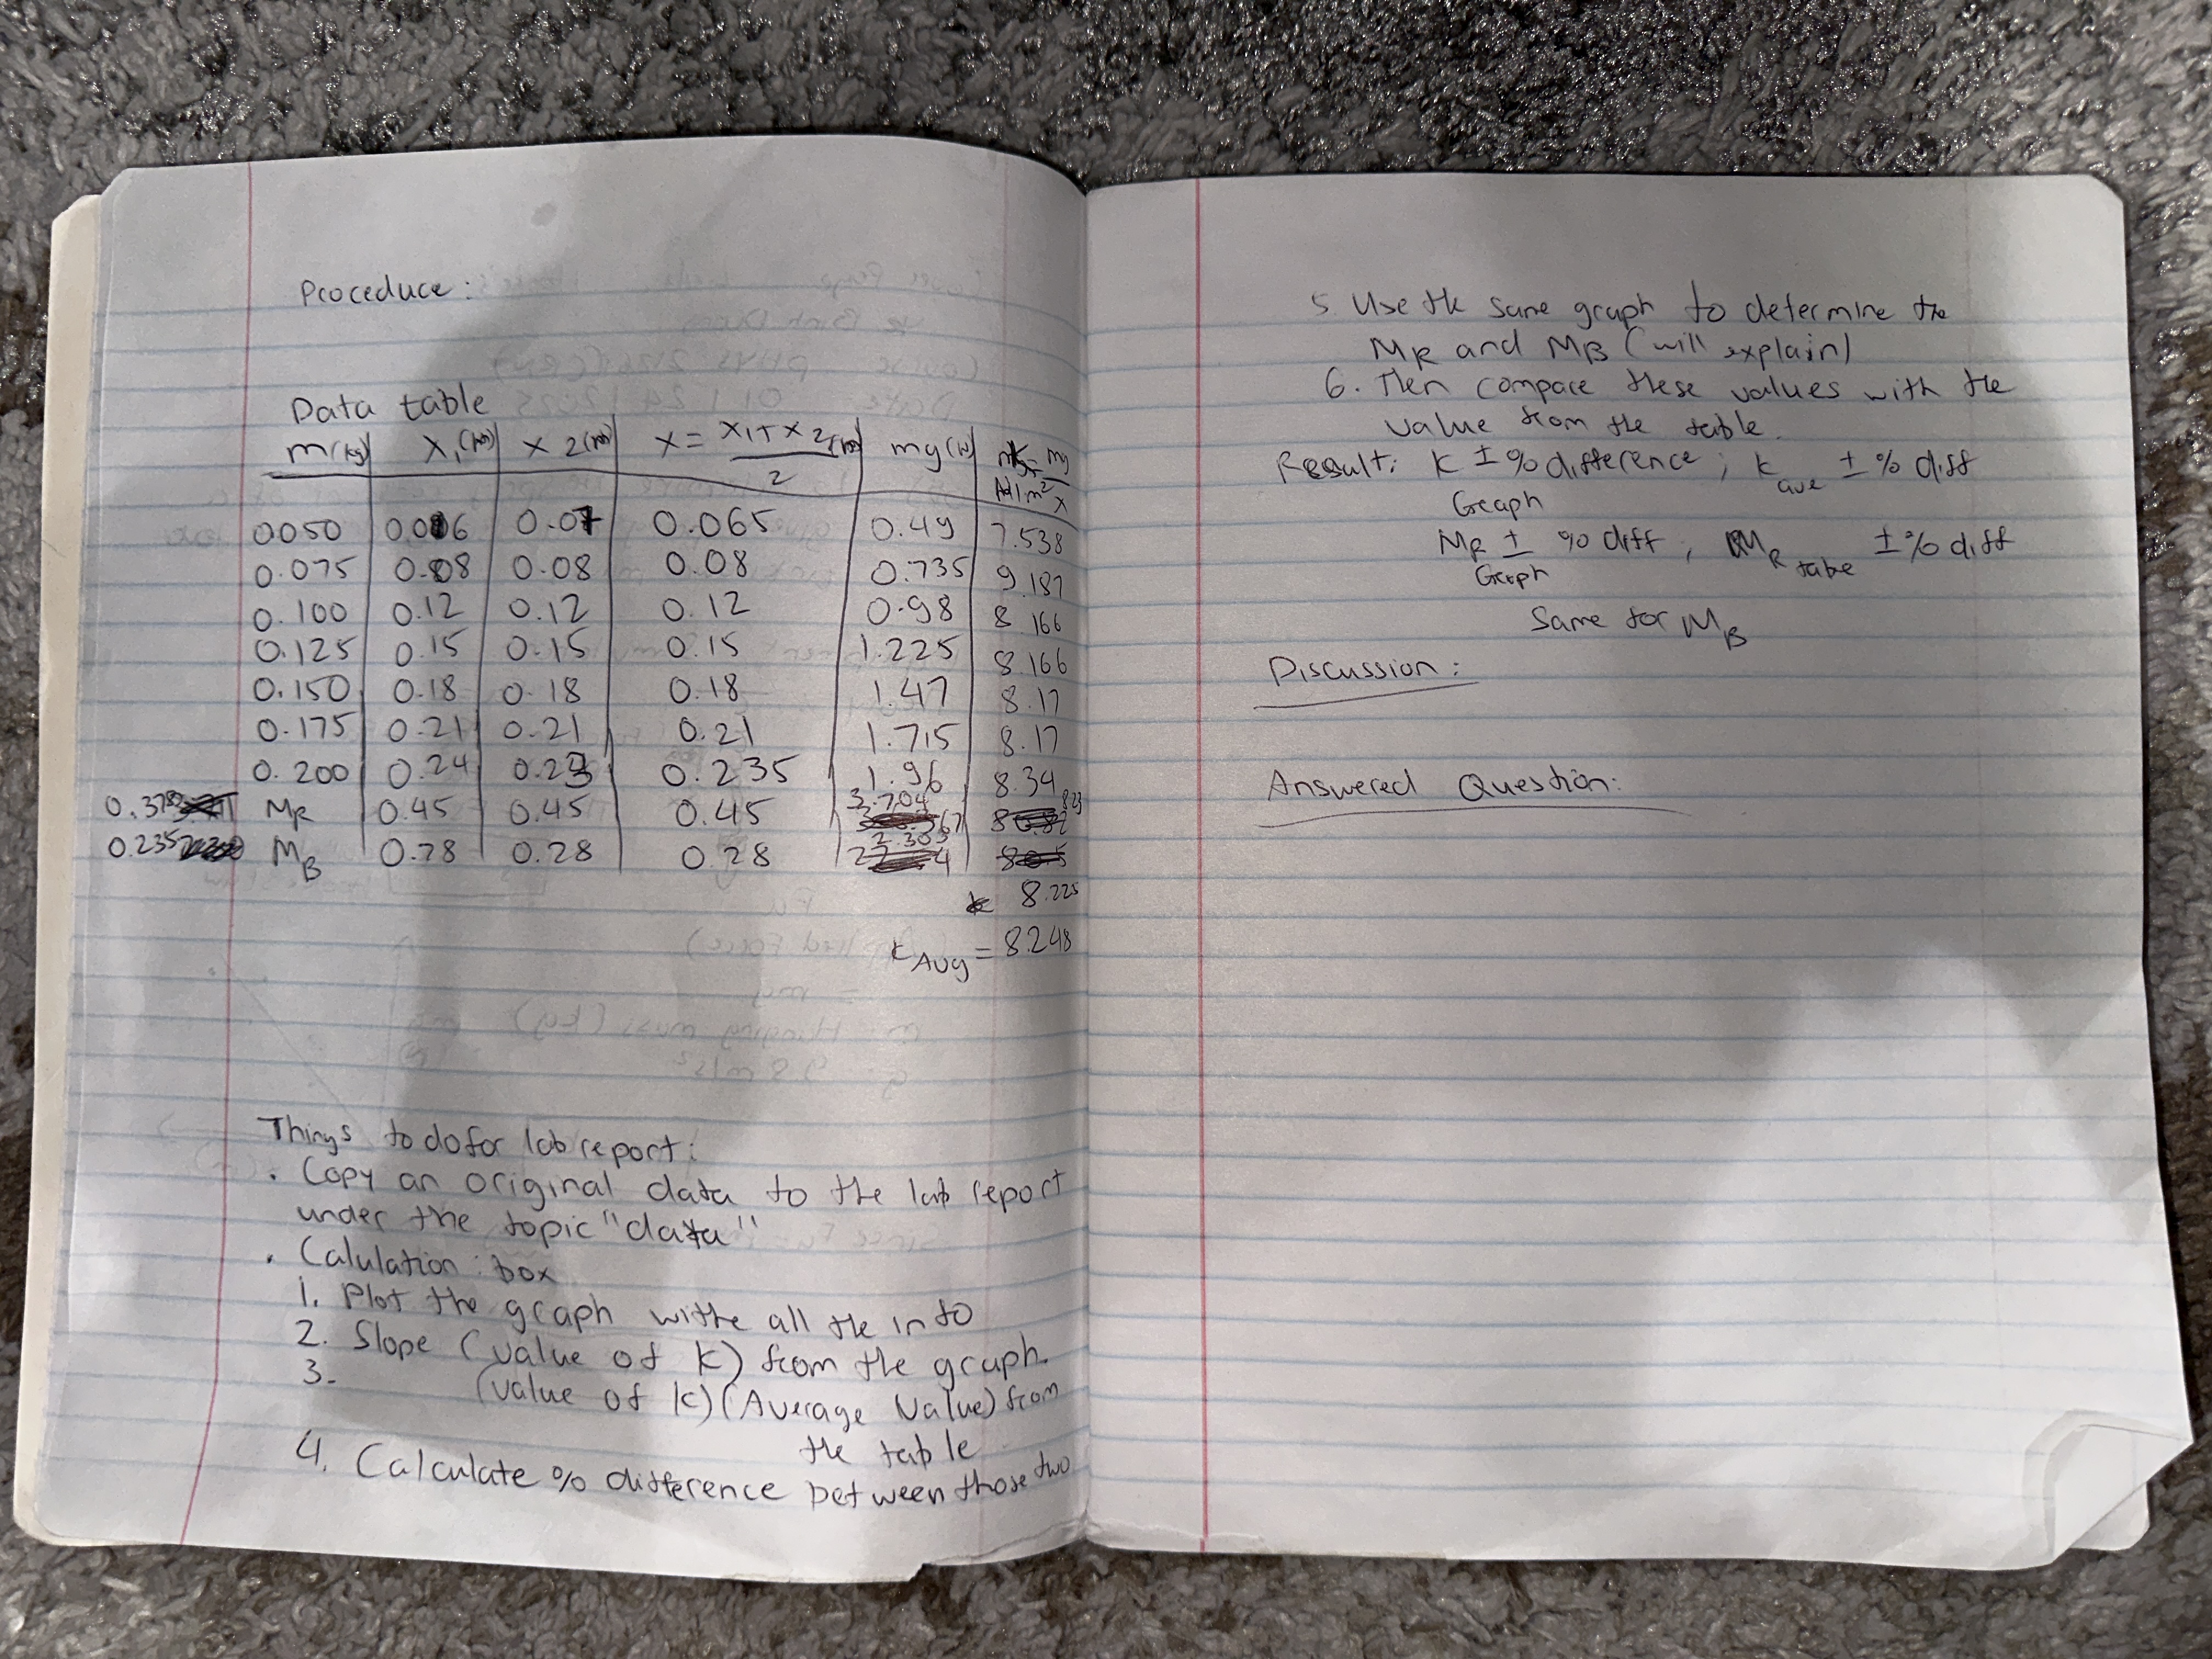 Proceduce:
Data table
m(kg) X1(m) X2(m) X = X1+X2(m) / 2 mg(N) K = mg / x
0.050 0.06 0.07 0.065 0.49 7.538
0.075 0.08 0.08 0.08 0.735 9.187
0.100 0.12 0.12 0.12 0.98 8.166
0.125 0.15 0.15 0.15 1.225 8.166
0.150 0.18 0.18 0.18 1.47 8.17
0.175 0.21 0.21 0.21 1.715 8.17
0.200 0.24 0.23 0.235 1.96 8.34
0.378 MR 0.45 0.45 0.45 3.704 8.23
0.235 MB 0.28 0.28 0.28 2.303
8.225
KAvg = 8.248
Things to do for lab report:
. Copy an original data to the lab report
under the topic "data"
. Calulation : box
1. Plot the graph withe all the info
2. Slope (value of K) from the graph.
3. (value of k) (Average Value) from
the table
4. Calculate % difference between those two
5. Use the same graph to determine the
MR and MB (will explain)
6. Then compare these values with the
value from the table.
Result: K ± % difference ; K ave ± % diff
Graph
MR ± % diff , MR table ± % diff
Graph
Same for MB
Discussion :
Answered Question: